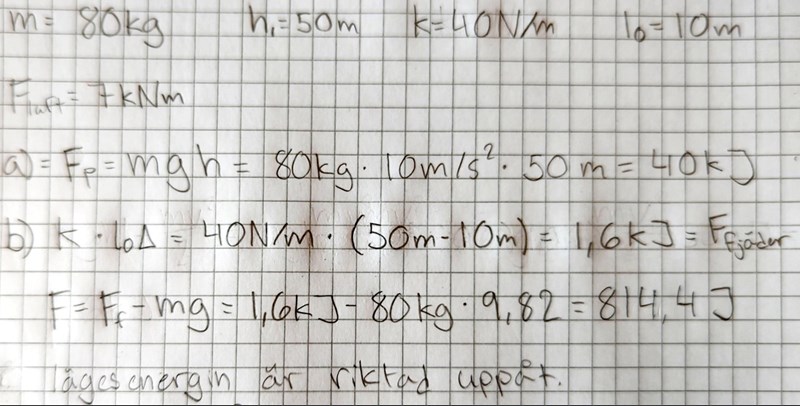 m = 80kg h₁ = 50m k = 40N/m l₀ = 10m
F_luft = 7kNm
a) = Fₚ = mgh = 80kg · 10m/s² · 50m = 40kJ
b) k · l₀Δ = 40N/m · (50m - 10m) = 1,6kJ = F_fjäder
F = F_f - mg = 1,6kJ - 80kg · 9,82 = 814,4J
lägesenergin är riktad uppåt.